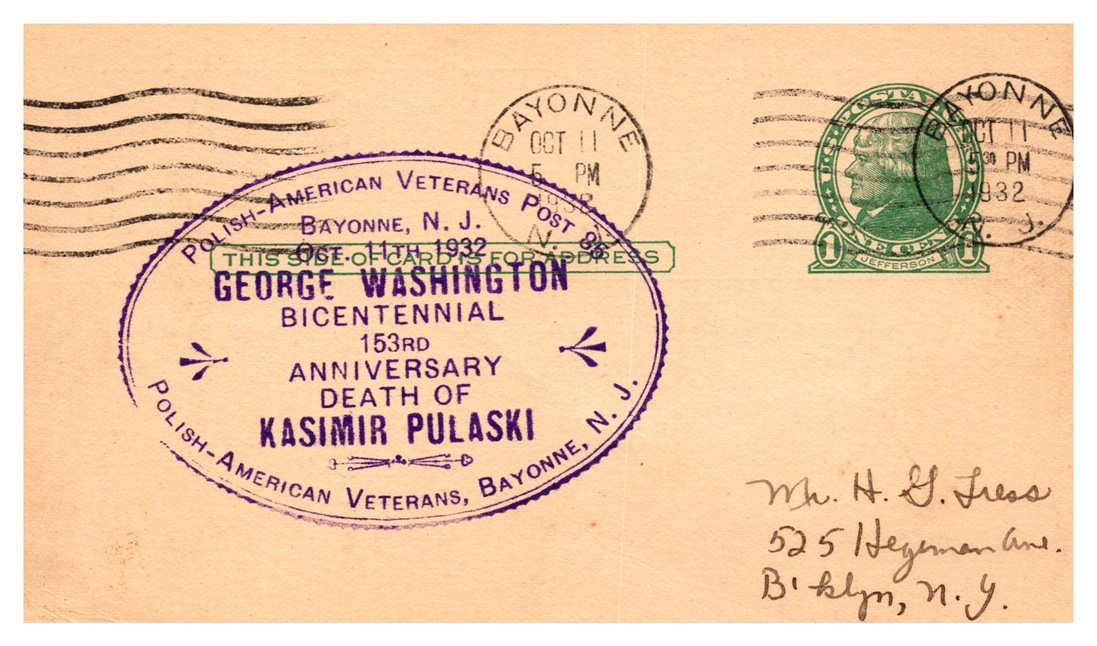 BAYONNE
OCT 11
5 PM
1932
N.
BAYONNE
OCT 11
5 30 PM
1932
N. J.
U·S·POSTA
ONE CENT
1 1
JEFFERSON
THIS SIDE OF CARD IS FOR ADDRESS
POLISH-AMERICAN VETERANS POST 86
BAYONNE, N. J.
OCT. 11TH 1932
GEORGE WASHINGTON
BICENTENNIAL
153RD
ANNIVERSARY
DEATH OF
KASIMIR PULASKI
POLISH-AMERICAN VETERANS, BAYONNE, N. J.
Mr. H. G. Tress
525 Hegeman Ave.
B'klyn, N. Y.